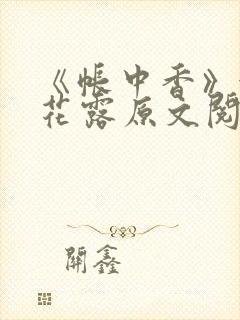 《帐中香》
花露原文阅
開鑫